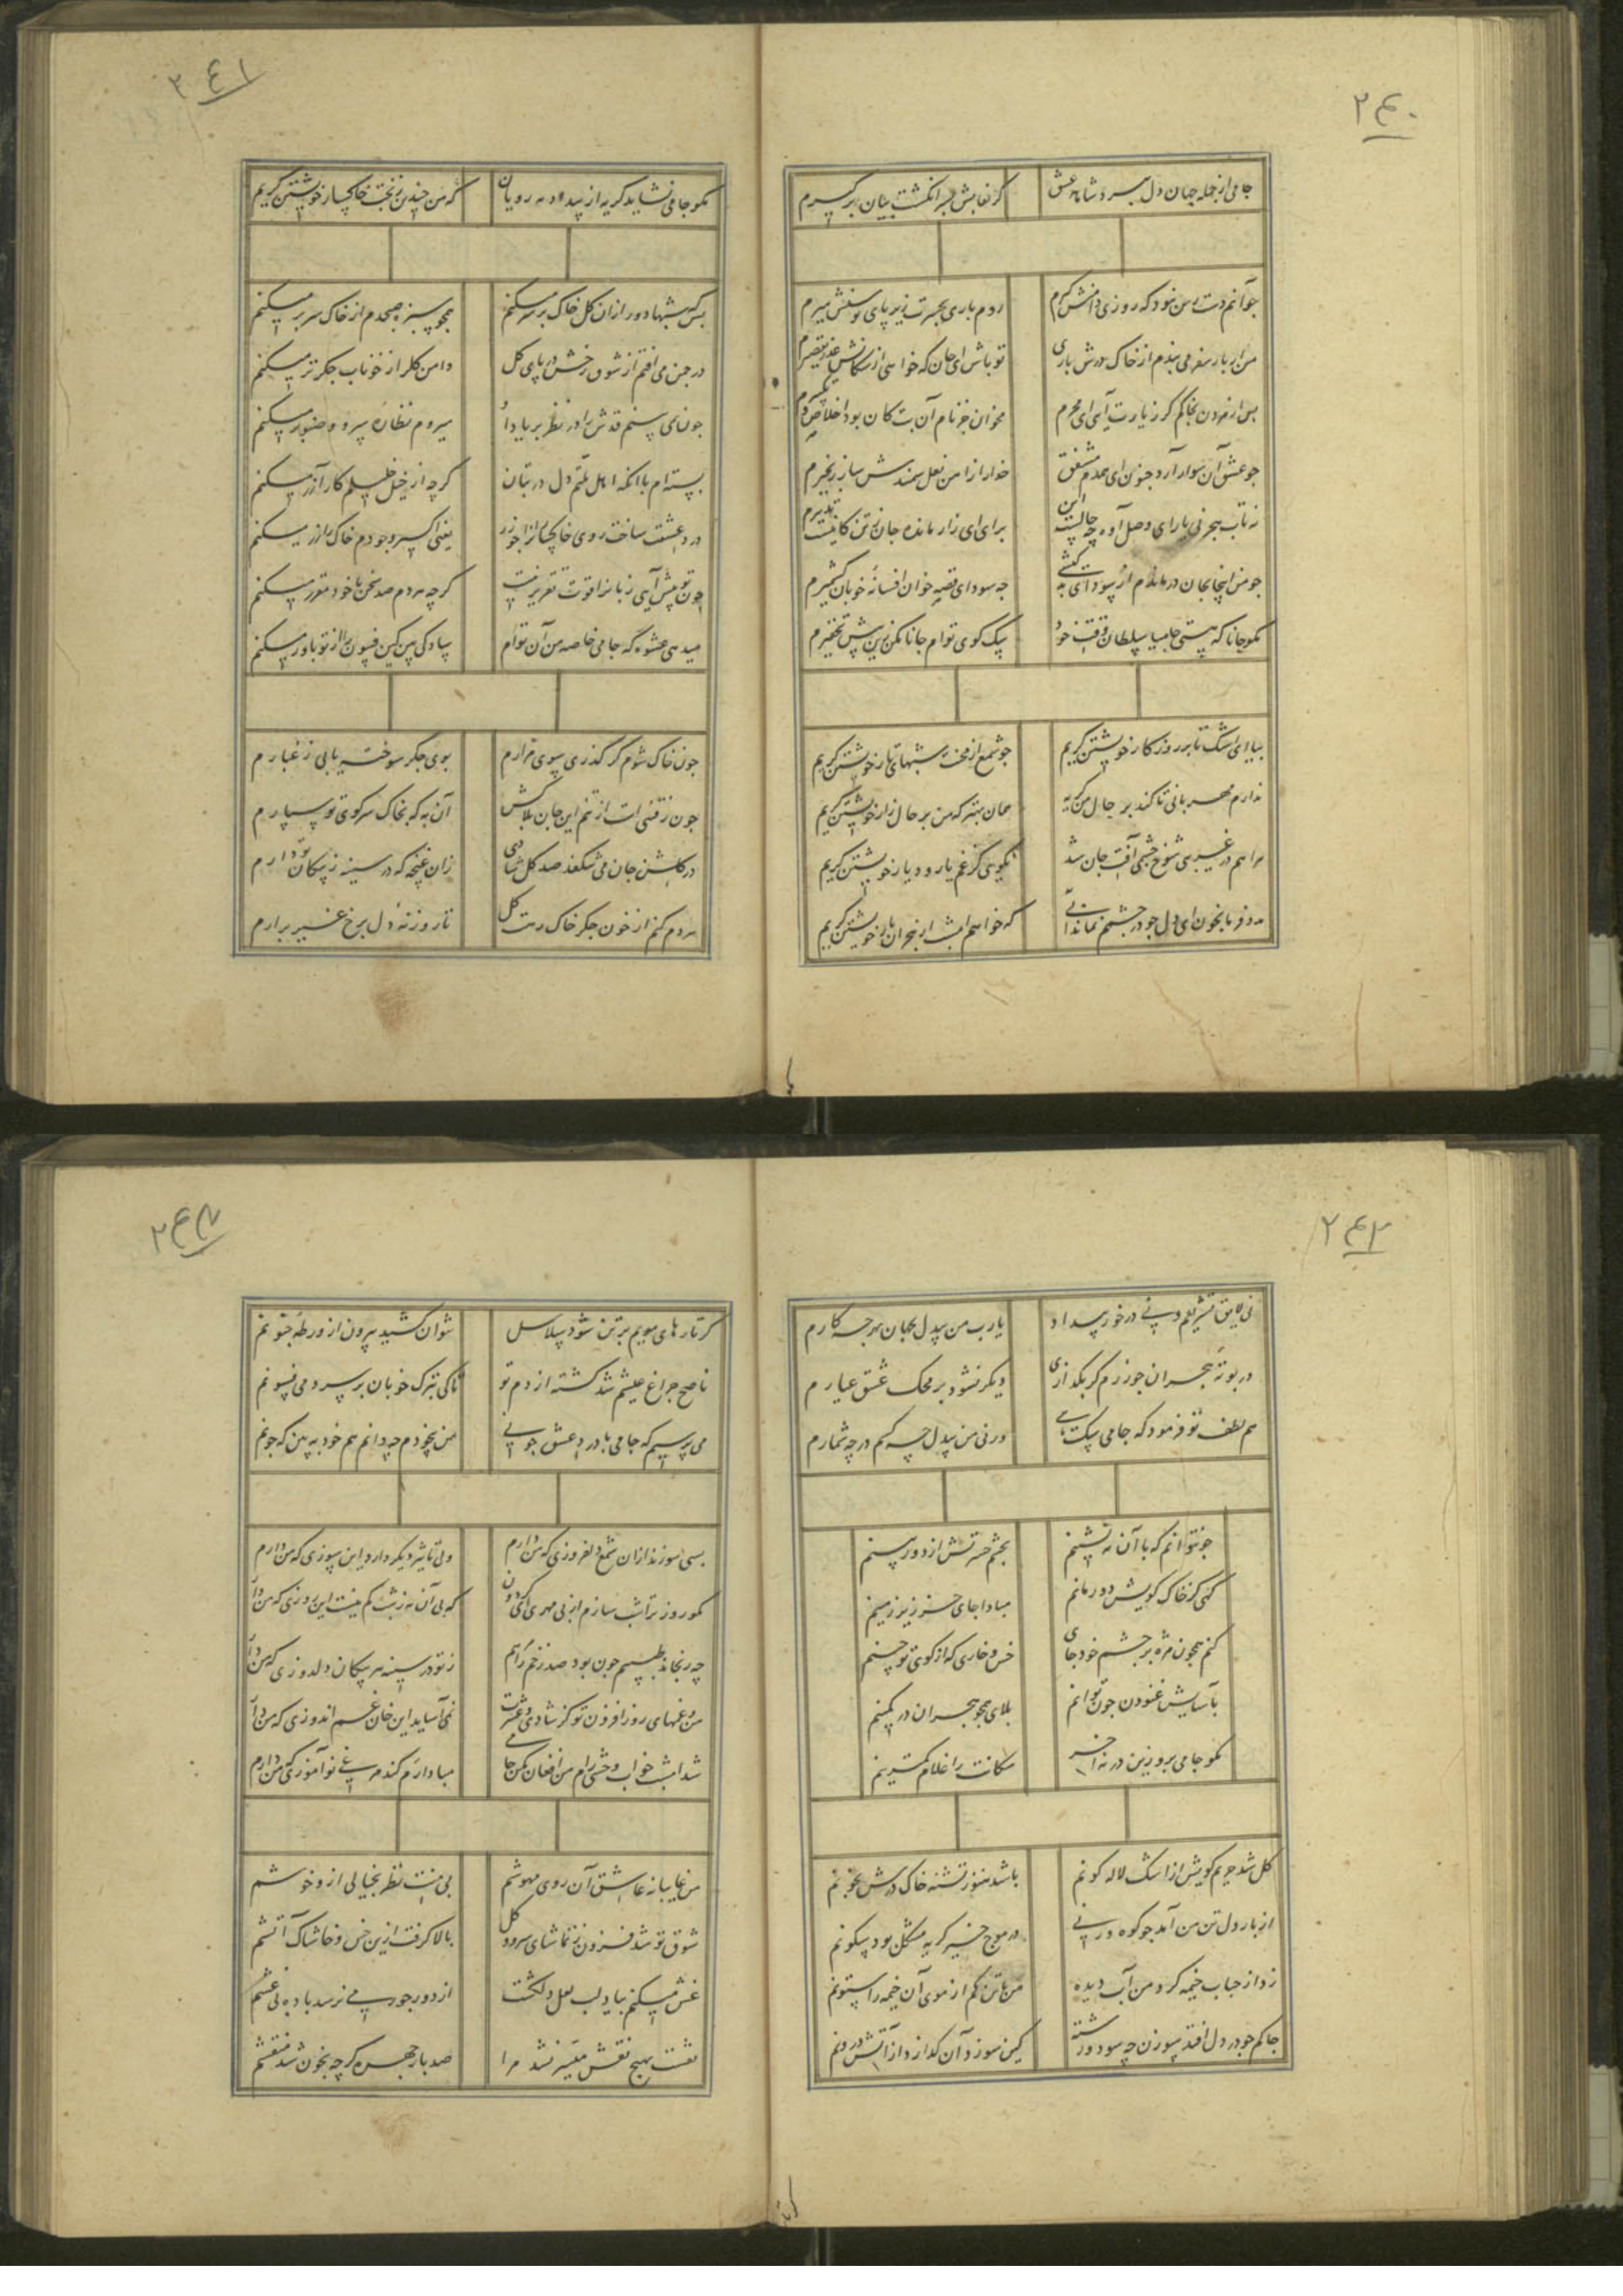 ۲٤۰
جامی از جمله جهان دل ببرد شاهد عشق
گر نقابش بسر انگشت بیان برگیرم
چو آنم دست رس نبود که روزی دامنش گیرم
روم باری بحسرت زیر پای توسنش میرم
من از بار سفر می بندم از خاک درش باری
تو باش ای جان که خواهی از سکانش عذر تقصیرم
پس از مردن بخاکم گر زیارت آیی ای محرم
مخوان جز نام آن بت کان بود اخلاص و تکبیرم
چو عشق آن سوار آرد جنون ای همدم مشفق
خدا را از امن نعل سمندش ساز زنجیرم
نه تاب هجر نی یارای وصل آوه چه حالست این
برای ای زار مانده جان ز تن کاینست تدبیرم
چو من اینجا بجان درمانده‌ام از سودای کشتی
چه سود ای قصه خوان افسانهٔ خوبان کشمیرم
مگو جانا که هستی جامیا سلطان وقت خود
سگ کوی توام جانا مکن زین بیش تحقیرم
بیا ای اشک تا بر روزگار خویشتن گریم
چو شمع از محنت شبهای تار خویشتن گریم
ندارم مهربانی تا کند بر حال من گریه
همان بهتر که من بر حال زار خویشتن گریم
مرا هم در غریبی شوخ چشمی آفت جان شد
نگویی کز غم یار و دیار خویشتن گریم
مدد فرما بخون ای دل چو در چشمم نماند آبی
که خواهم امشب از هجران یار خویشتن گریم
۲٤۱
مگو جامی نشاید گریه از بیداد مه رویان
که من چندین ز بخت خاکسار خویشتن گریم
بس که شبها دور از آن گل خاک بر سر میکنم
همچو سبزه صبحدم از خاک سر بر میکنم
در چمن می افتم از شوق رخش در پای گل
دامن گل را ز خوناب جگر تر میکنم
چون نمی بینم قدش را در نظر بر یاد او
میروم نظاره سرو و صنوبر میکنم
بسته ام با آنکه اهل ملتم دل در بتان
گرچه از خیل خلیلم کار آزر میکنم
درد عشقت ساخت روی خاکیم را جو زر
یعنی اکسیر وجودم خاک را زر میکنم
چون تو پیش آیی زبانرا قوت تقریر نیست
گرچه هر دم صد سخن با خود مقرر میکنم
میدهی عشوه که جامی خاصه من آن توام
سادگی بین کین فسون را از تو باور میکنم
چون خاک شوم گر گذری سوی مزارم
بوی جگر سوخته یابی ز غبارم
چون رفتنی است از تنم این جان بلاکش
آن به که بخاک سر کوی تو سپارم
در گلشن جان می شکفد صد گل شادی
زان غنچه که در سینه ز پیکان تو دارم
هر دم کنم از خون جگر خاک رهت گل
تا روزنهٔ دل برخ غیر برآرم
۲٤۲
نی لایق تشریفم و نی در خور بیداد
یارب من بیدل بجهان بهر چه کارم
در بوته هجران چو زرم گر بگدازی
دیگر نشود بر محک عشق عیارم
هم لطف تو فرمود که جامی سگ مایی
ورنی من بیدل چه کسم در چه شمارم
چو نتوانم که با آن مه نشینم
بچشم حسرتش از دور بینم
گهی کز خاک کویش دور مانم
مبادا جای جز زیر زمینم
کنم همچون مژه بر چشم خود جای
خس و خاری که از کوی تو چینم
بآسایش غنودن چون توانم
بلای همچو هجران در کمینم
مگو جامی برو زین در نه آخر
سکانت را غلام کمترینم
گل شد حریم کویش از اشک لاله گونم
باشد هنوز تشنه خاک درش بخونم
از بار دل تن من آمد چو کوه ورنی
در موج خیز گریه مشکل بود سکونم
زد از حباب خیمه گرد من آب دیده
من با تن کم از موی آن خیمه را ستونم
چاکم چو در دل افتد سوزن چه سود و رشته
کین سوزد آن گدازد از آتش درونم
۲٤۳
گر تارهای مویم بر تن شود سلاسل
نتوان کشید بیرون از ورطه جنونم
ناصح چراغ عیشم شد کشته از دم تو
تا کی بترک خوبان بر سر دمی فسونم
می پرسیم که جامی با درد عشق چونی
من بیخودم چه دانم هم خود ببین که چونم
بسی سوزند از آن شمع دلفروزی که من دارم
ولی تاثیر دیگر دارد این سوزی که من دارم
مگو روز ترا شب سازم از بی مهری ای گردون
که بی آن مه ز شب کم نیست این روزی که من دارم
چه رنجاند طبیبم چون بود صد زخم را مرهم
ز تو در سینه هر پیکان دلدوزی که من دارم
من و غمهای روز افزون تو کز شادی و عشرت
نمی آساید این جان غم اندوزی که من دارم
شد امشب خواب وحشی رام من افغان مکن جامی
مبادا رم کند مرغ نو آموزی که من دارم
من غایبانه عاشق آن روی مهوشم
بی منت نظر بخیالی ازو خوشم
شوق تو شد فزون ز تماشای سرو و گل
بالا گرفت ازین خس و خاشاک آتشم
غش میکنم بیاد لب لعل دلکشت
از دور جور می نرسد باده بی غشم
نقشت بهیچ نقش میسر نشد مرا
صد بار چهره گرچه بخون شد منقشم